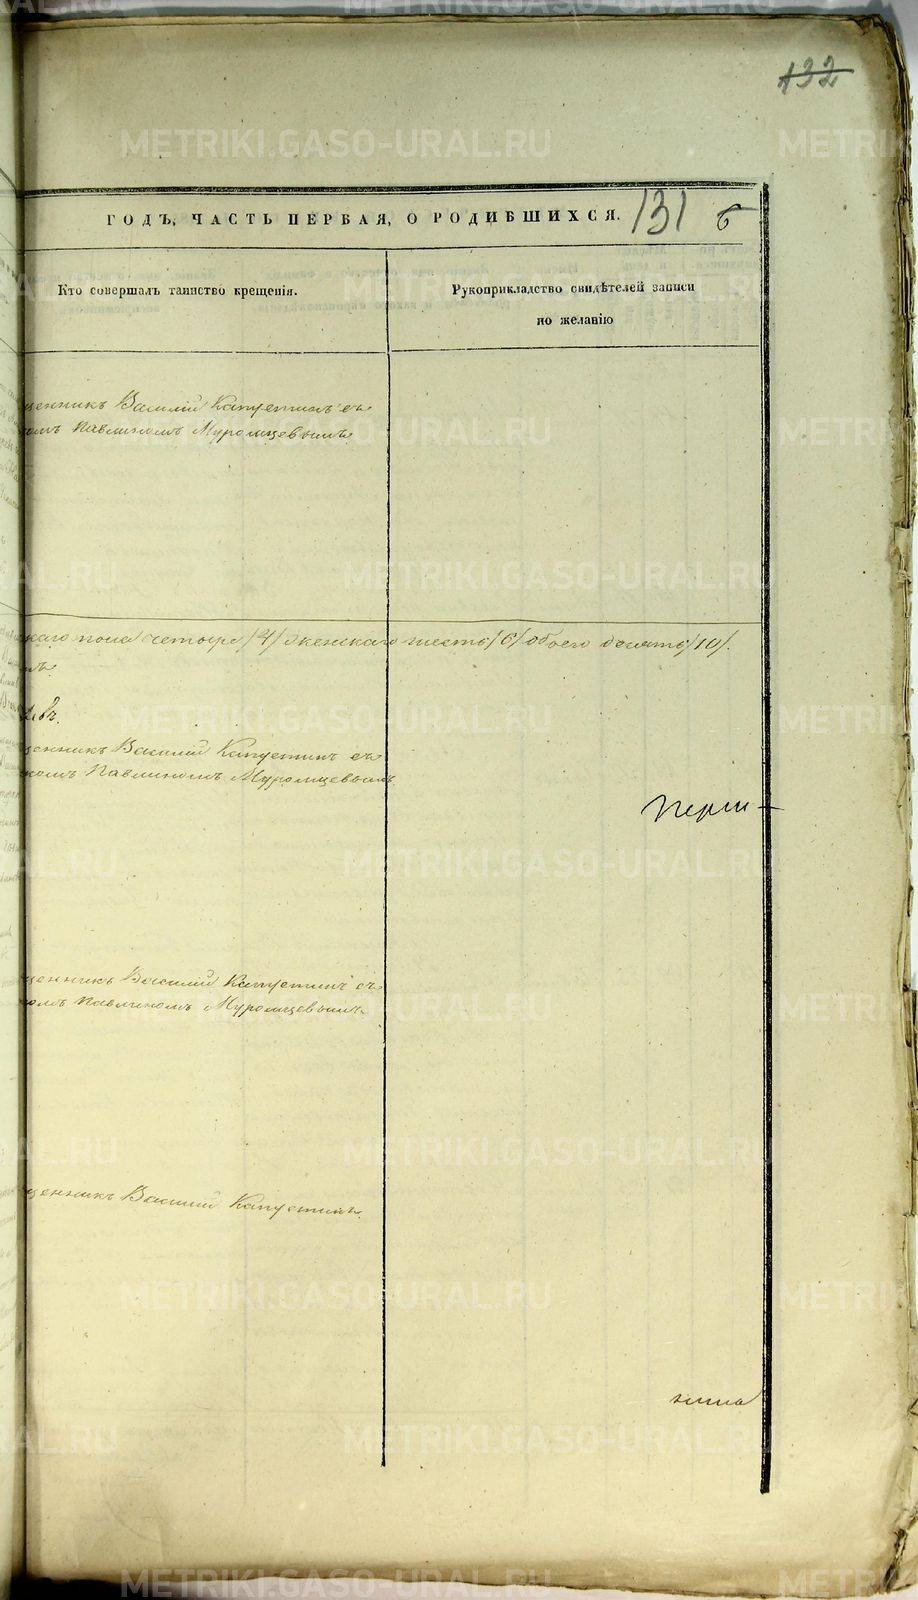 132
ГОДЪ, ЧАСТЬ ПЕРВАЯ, О РОДИВШИХСЯ. 131 6
Кто совершалъ таинство крещенія.
Рукоприкладство свидѣтелей записи
по желанію
щенникъ Василій Капустинъ съ
омъ Павлиномъ Муромцевымъ.
каго пола четыре /4/ женскаго шесть /6/ обоего десять /10/.
щенникъ Василій Капустинъ съ
комъ Павлиномъ Муромцевымъ
щенникъ Василій Капустинъ съ
омъ Павлиномъ Муромцевымъ.
щенникъ Василій Капустинъ.
METRIKI.GASO-URAL.RU